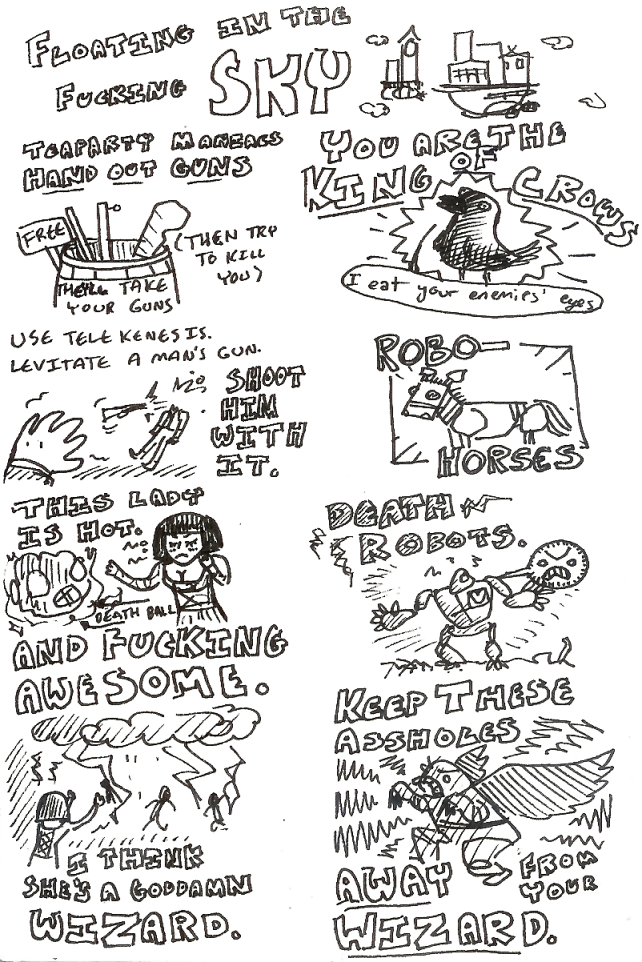 FLOATING IN THE
FUCKING SKY
TEAPARTY MANIACS
HAND OUT GUNS
FREE
(THEN TRY
TO KILL
YOU)
THEY'LL TAKE
YOUR GUNS
YOU ARE THE
KING OF CROWS
I eat your enemies' eyes
USE TELEKENESIS.
LEVITATE A MAN'S GUN.
SHOOT
HIM
WITH
IT.
ROBO-
HORSES
THIS LADY
IS HOT.
DEATH BALL
AND FUCKING
AWESOME.
DEATH
ROBOTS.
I THINK
SHE'S A GODDAMN
WIZARD.
KEEP THESE
ASSHOLES
AWAY FROM
YOUR
WIZARD.